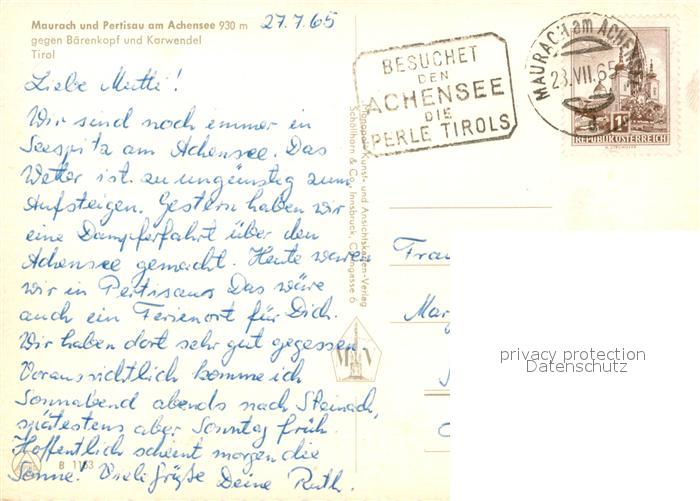 Maurach und Pertisau am Achensee 930 m
gegen Bärenkopf und Karwendel
Tirol
27.7.65
Liebe Mutti!
Wir sind noch immer in
Seespitz am Achensee. Das
Wetter ist zu ungünstig zum
Aufsteigen. Gestern haben wir
eine Dampferfahrt über den
Achensee gemacht. Heute waren
wir in Pertisau. Das wäre
auch ein Ferienort für Dich.
Wir haben dort sehr gut gegessen.
Voraussichtlich komme ich
Sonnabend abends nach Steinach,
spätestens aber Sonntag früh.
Hoffentlich scheint morgen die
Sonne. Viele Grüße Deine Ruth.
B 1163
Kunst- und Ansichtskarten-Verlag
Schöllhorn & Co., Innsbruck,
BESUCHET
DEN
ACHENSEE
DIE
PERLE TIROLS
MAURACH am ACHENSEE
28.VII.65
1S
REPUBLIK ÖSTERREICH
Frau
privacy protection
Datenschutz